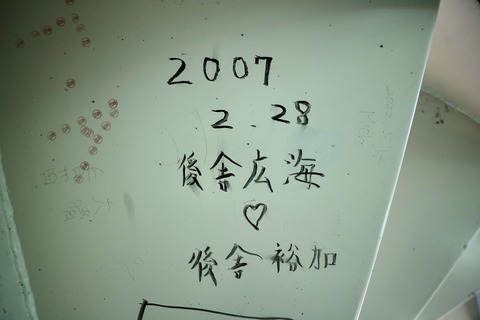 2007
2.28
後舎広海
♡
後舎裕加